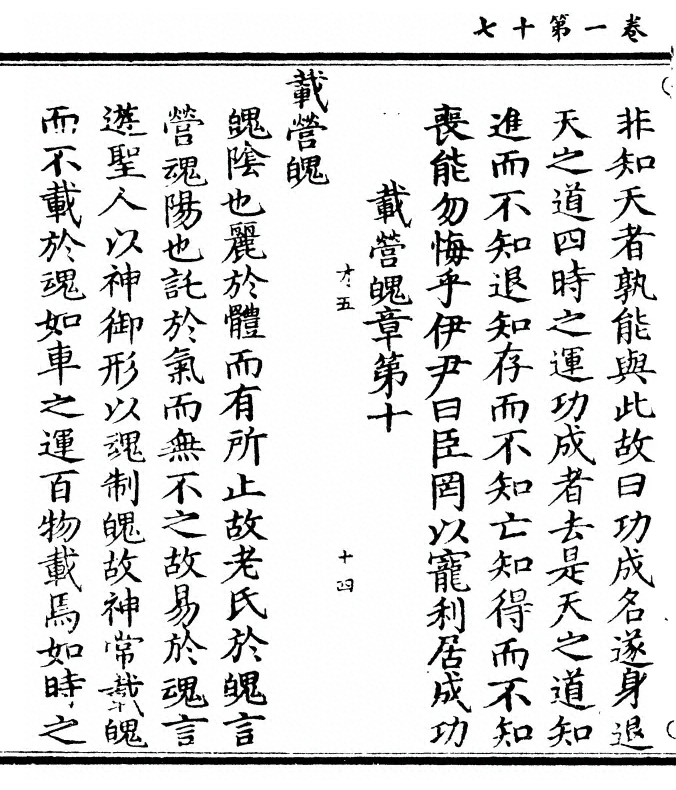 卷一第十七
非知天者孰能與此故曰功成名遂身退
天之道四時之運功成者去是天之道知
進而不知退知存而不知亡知得而不知
喪能勿悔乎伊尹曰臣罔以寵利居成功
載營魄章第十
才五
十四
載營魄
魄陰也麗於體而有所止故老氏於魄言
營魂陽也託於氣而無不之故易於魂言
遊聖人以神御形以魂制魄故神常載魄
而不載於魂如車之運百物載焉如時之